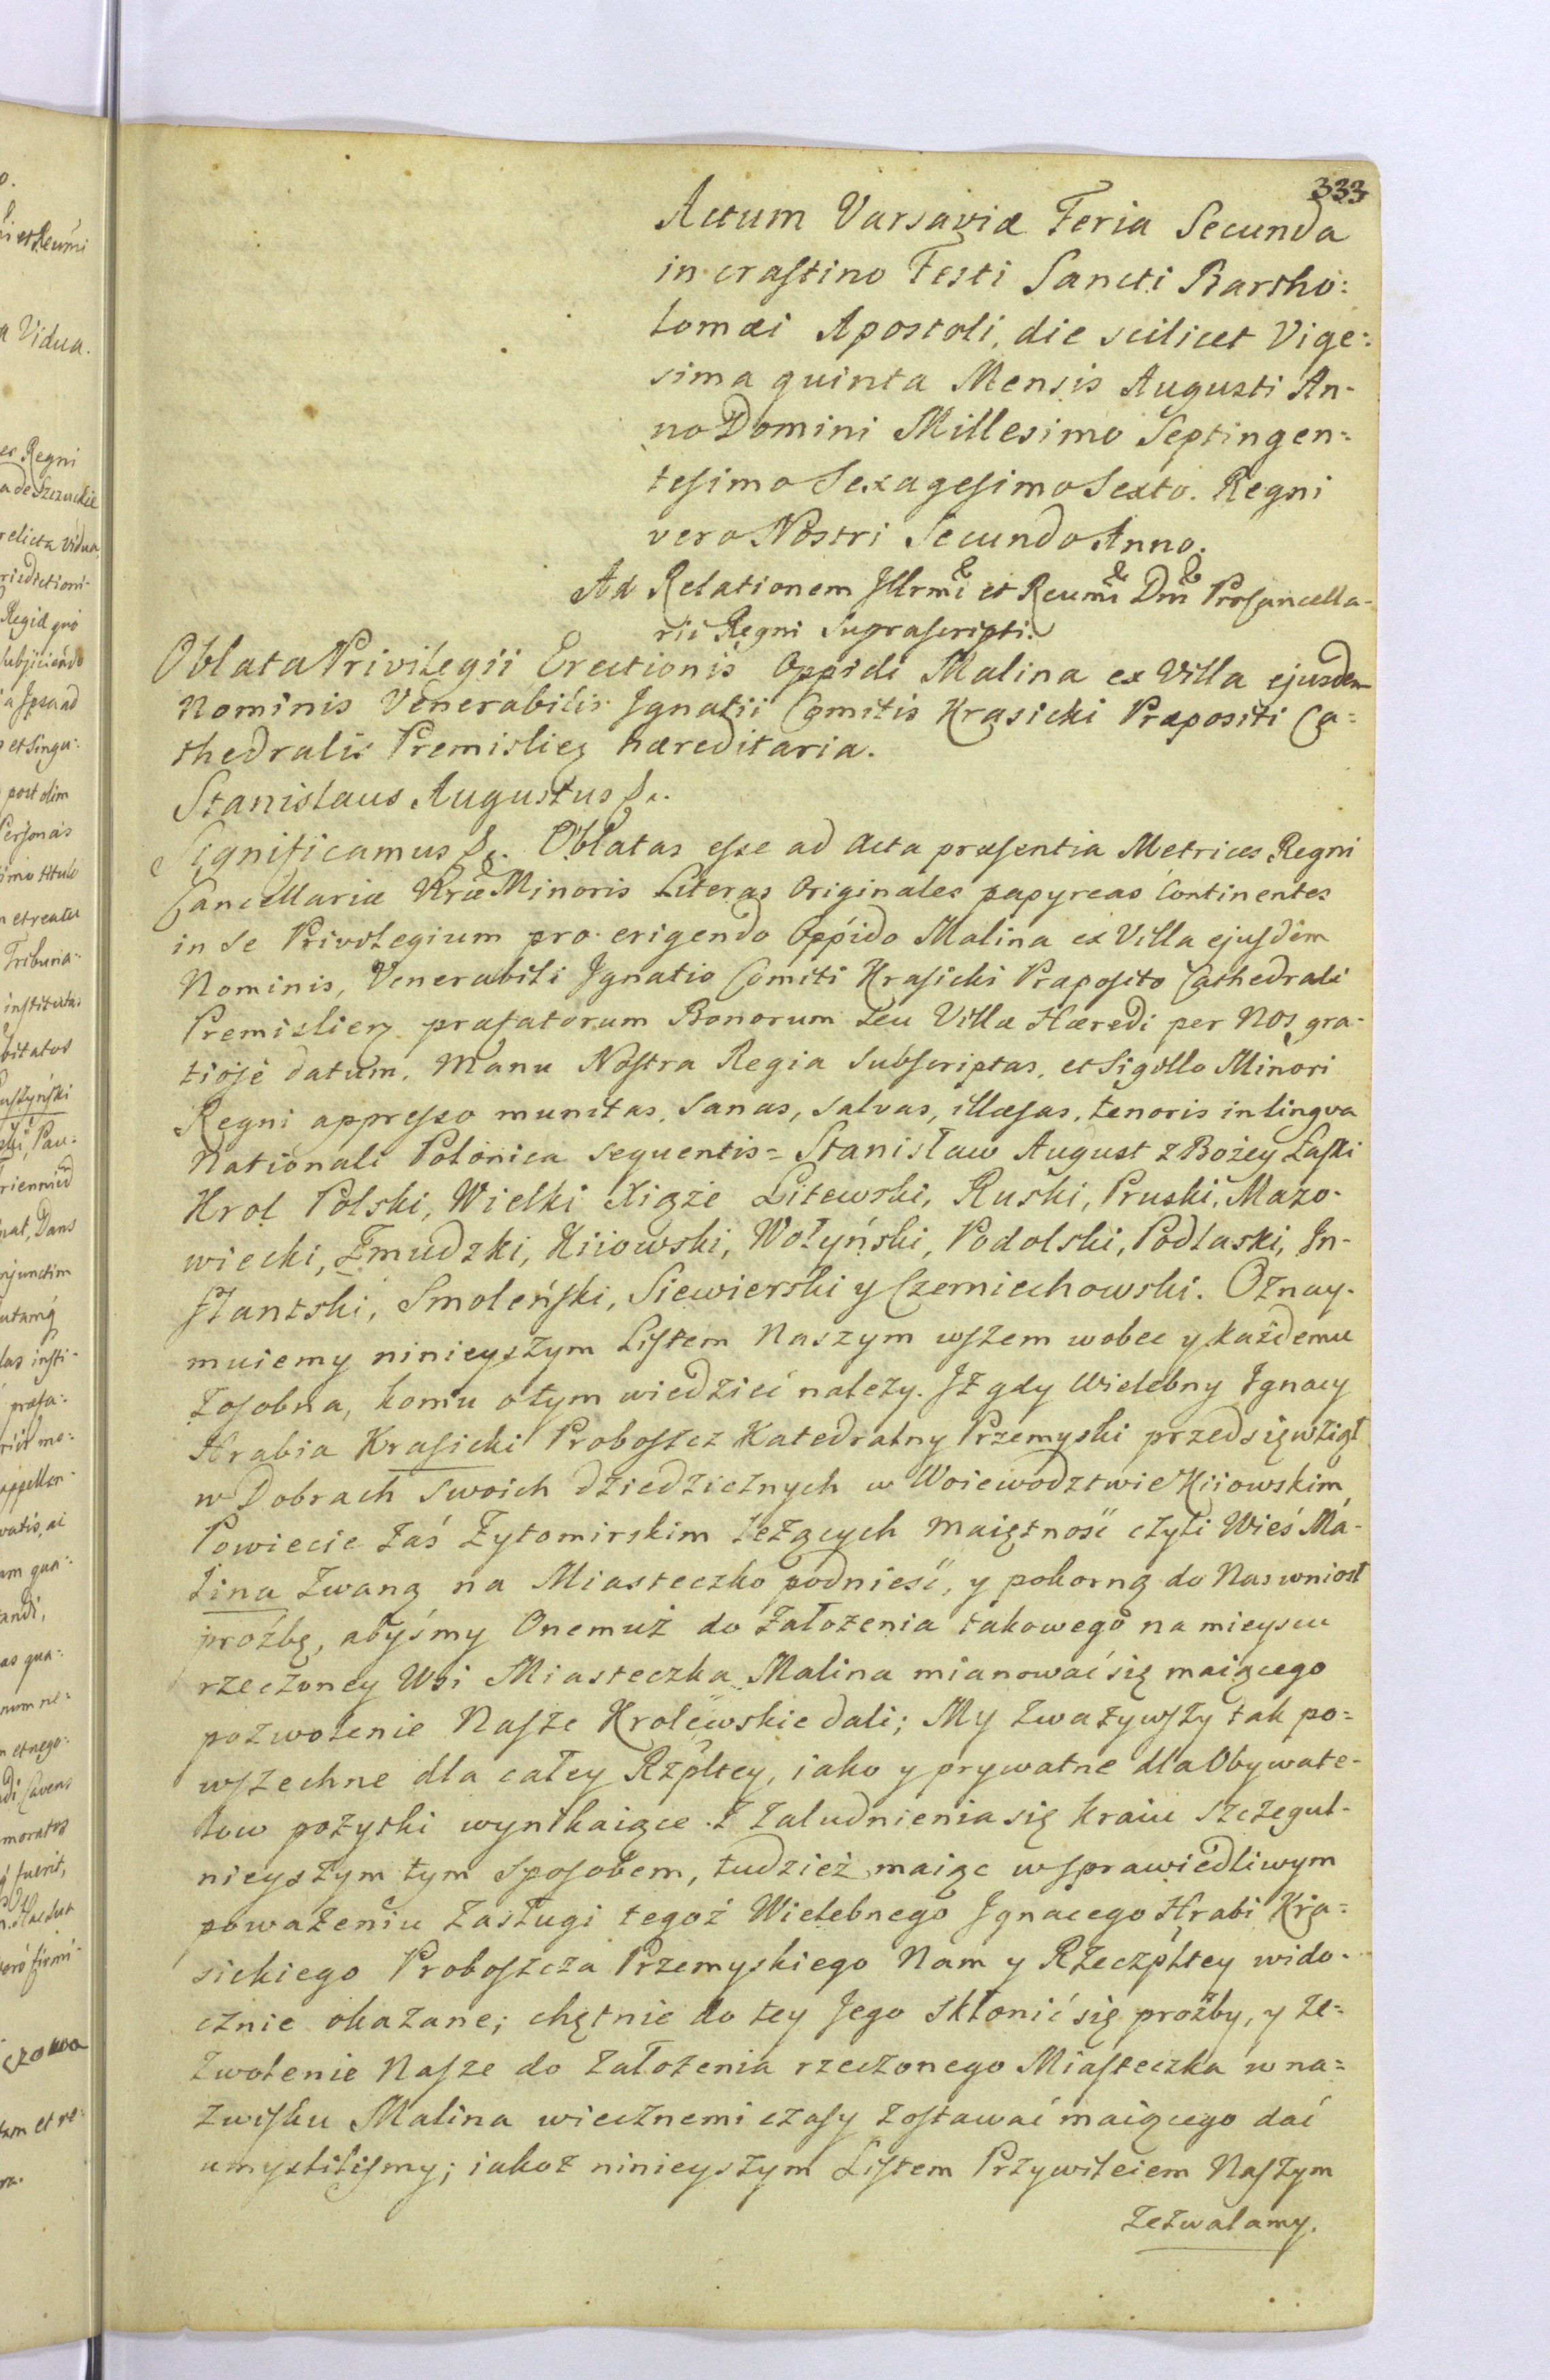 333
Actum Varsaviæ Feria Secunda
in crastino Festi Sancti Bartho:
lomæi Apostoli, die scilicet Vige:
sima quinta Mensis Augusti An-
no Domini Millesimo Septingen:
tesimo Sexagesimo Sexto. Regni
vero Nostri Secundo Anno.
Ad Relationem Illrmi et Reumi Dni Procancella-
rii Regni Suprascripti.
Oblata Privilegii Erectionis Oppidi Malina ex Villa ejusdem
Nominis Venerabilis Ignatii Comitis Krasicki Præpositi Ca:
thedralis Premislien hæreditaria.
Stanislaus Augustus &c.
Significamus &c. Oblatas esse ad Acta præsentia Metrices Regni
Cancellariæ Nræ Minoris Literas Originales papyreas Continentes
in se Privilegium pro erigendo Oppido Malina ex Villa ejusdem
Nominis, Venerabili Ignatio Comiti Krasicki Præposito Cathedrali
Premislien præfatorum Bonorum seu Villæ Hæredi per Nos gra-
tiose datum, Manu Nostra Regia Subscriptas, et Sigillo Minori
Regni appresso munitas, Sanas, Salvas, illæsas, tenoris in lingva
Nationali Polonica sequentis = Stanisław August z Bożey Łaski
Krol Polski, Wielki Xiąże Litewski, Ruski, Pruski, Mazo-
wiecki, Zmudzki, Kiiowski, Wołyński, Podolski, Podlaski, In-
flantski, Smoleński, Siewierski y Czerniechowski. Oznay-
muiemy ninieyszym Listem Naszym wszem wobec y każdemu
zosobna, komu o tym wiedzieć należy. Iż gdy Wielebny Ignacy
Hrabia Krasicki Proboszcz Katedralny Przemyski przedsięwziął
w Dobrach swoich dziedzicznych w Woiewodztwie Kiiowskim
Powiecie zaś Zytomirskim leżących maiętność czyli Wieś Ma-
lina zwaną na Miasteczko podnieść, y pokorną do Nas wniosł
prożbę, abyśmy Onemuż do założenia takowego na mieyscu
rzeczoney Wsi Miasteczka Malina mianować się maiącego
pozwolenie Nasze Krolewskie dali; My zważywszy tak po=
wszechne dla całey Rzpltey, iako y prywatne dla Obywate-
low pożytki wynikaiące z zaludnienia się kraiu szczegul-
nieyszym tym sposobem, tudzież maiąc w sprawiedliwym
poważeniu zasługi tegoż Wielebnego Ignacego Hrabi Kra=
sickiego Proboszcza Przemyskiego Nam y Rzeczpltey wido-
cznie okazane; chętnie do tey Jego skłonić się prożby, y ze=
zwolenie Nasze do założenia rzeczonego Miasteczka w na=
zwisku Malina wiecznemi czasy zostawać maiącego dać
umyśliliśmy; iakoż ninieyszym Listem Przywileiem Naszym
zezwalamy.